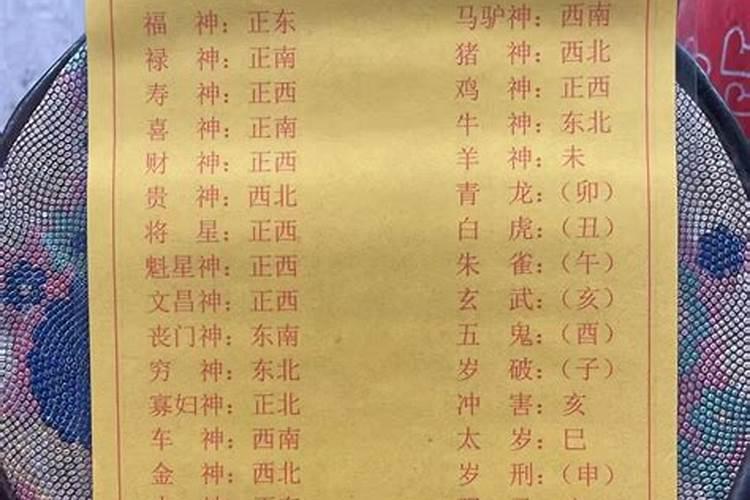 福 神：正东
禄 神：正南
寿 神：正西
喜 神：正南
财 神：正西
贵 神：西北
将 星：正西
魁星神：正西
文昌神：正西
丧门神：东南
穷 神：东北
寡妇神：正北
车 神：西南
金 神：西北
马驴神：西南
猪 神：西北
鸡 神：正西
牛 神：东北
羊 神：未
青 龙：（卯）
白 虎：（丑）
朱 雀：（午）
玄 武：（亥）
五 鬼：（酉）
岁 破：（子）
冲 害：亥
太 岁：巳
岁 刑：（申）